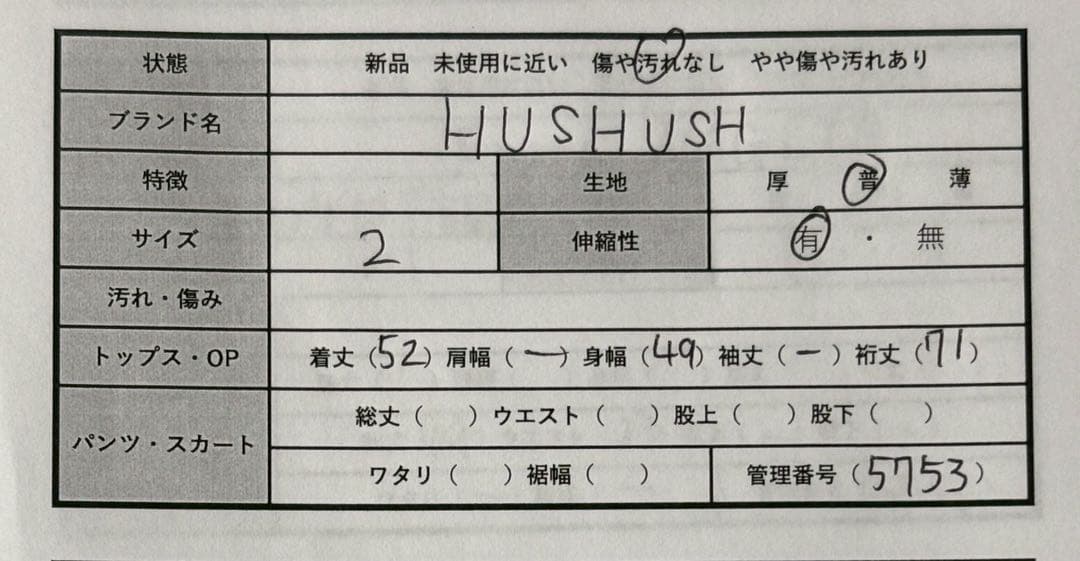 状態 新品 未使用に近い 傷や汚れなし やや傷や汚れあり
ブランド名 HUSHUSH
特徴 生地 厚 普 薄
サイズ 2 伸縮性 有 ・ 無
汚れ・傷み
トップス・OP 着丈（52）肩幅（ー）身幅（49）袖丈（ー）裄丈（71）
パンツ・スカート 総丈（ ）ウエスト（ ）股上（ ）股下（ ）
ワタリ（ ）裾幅（ ） 管理番号（5753）